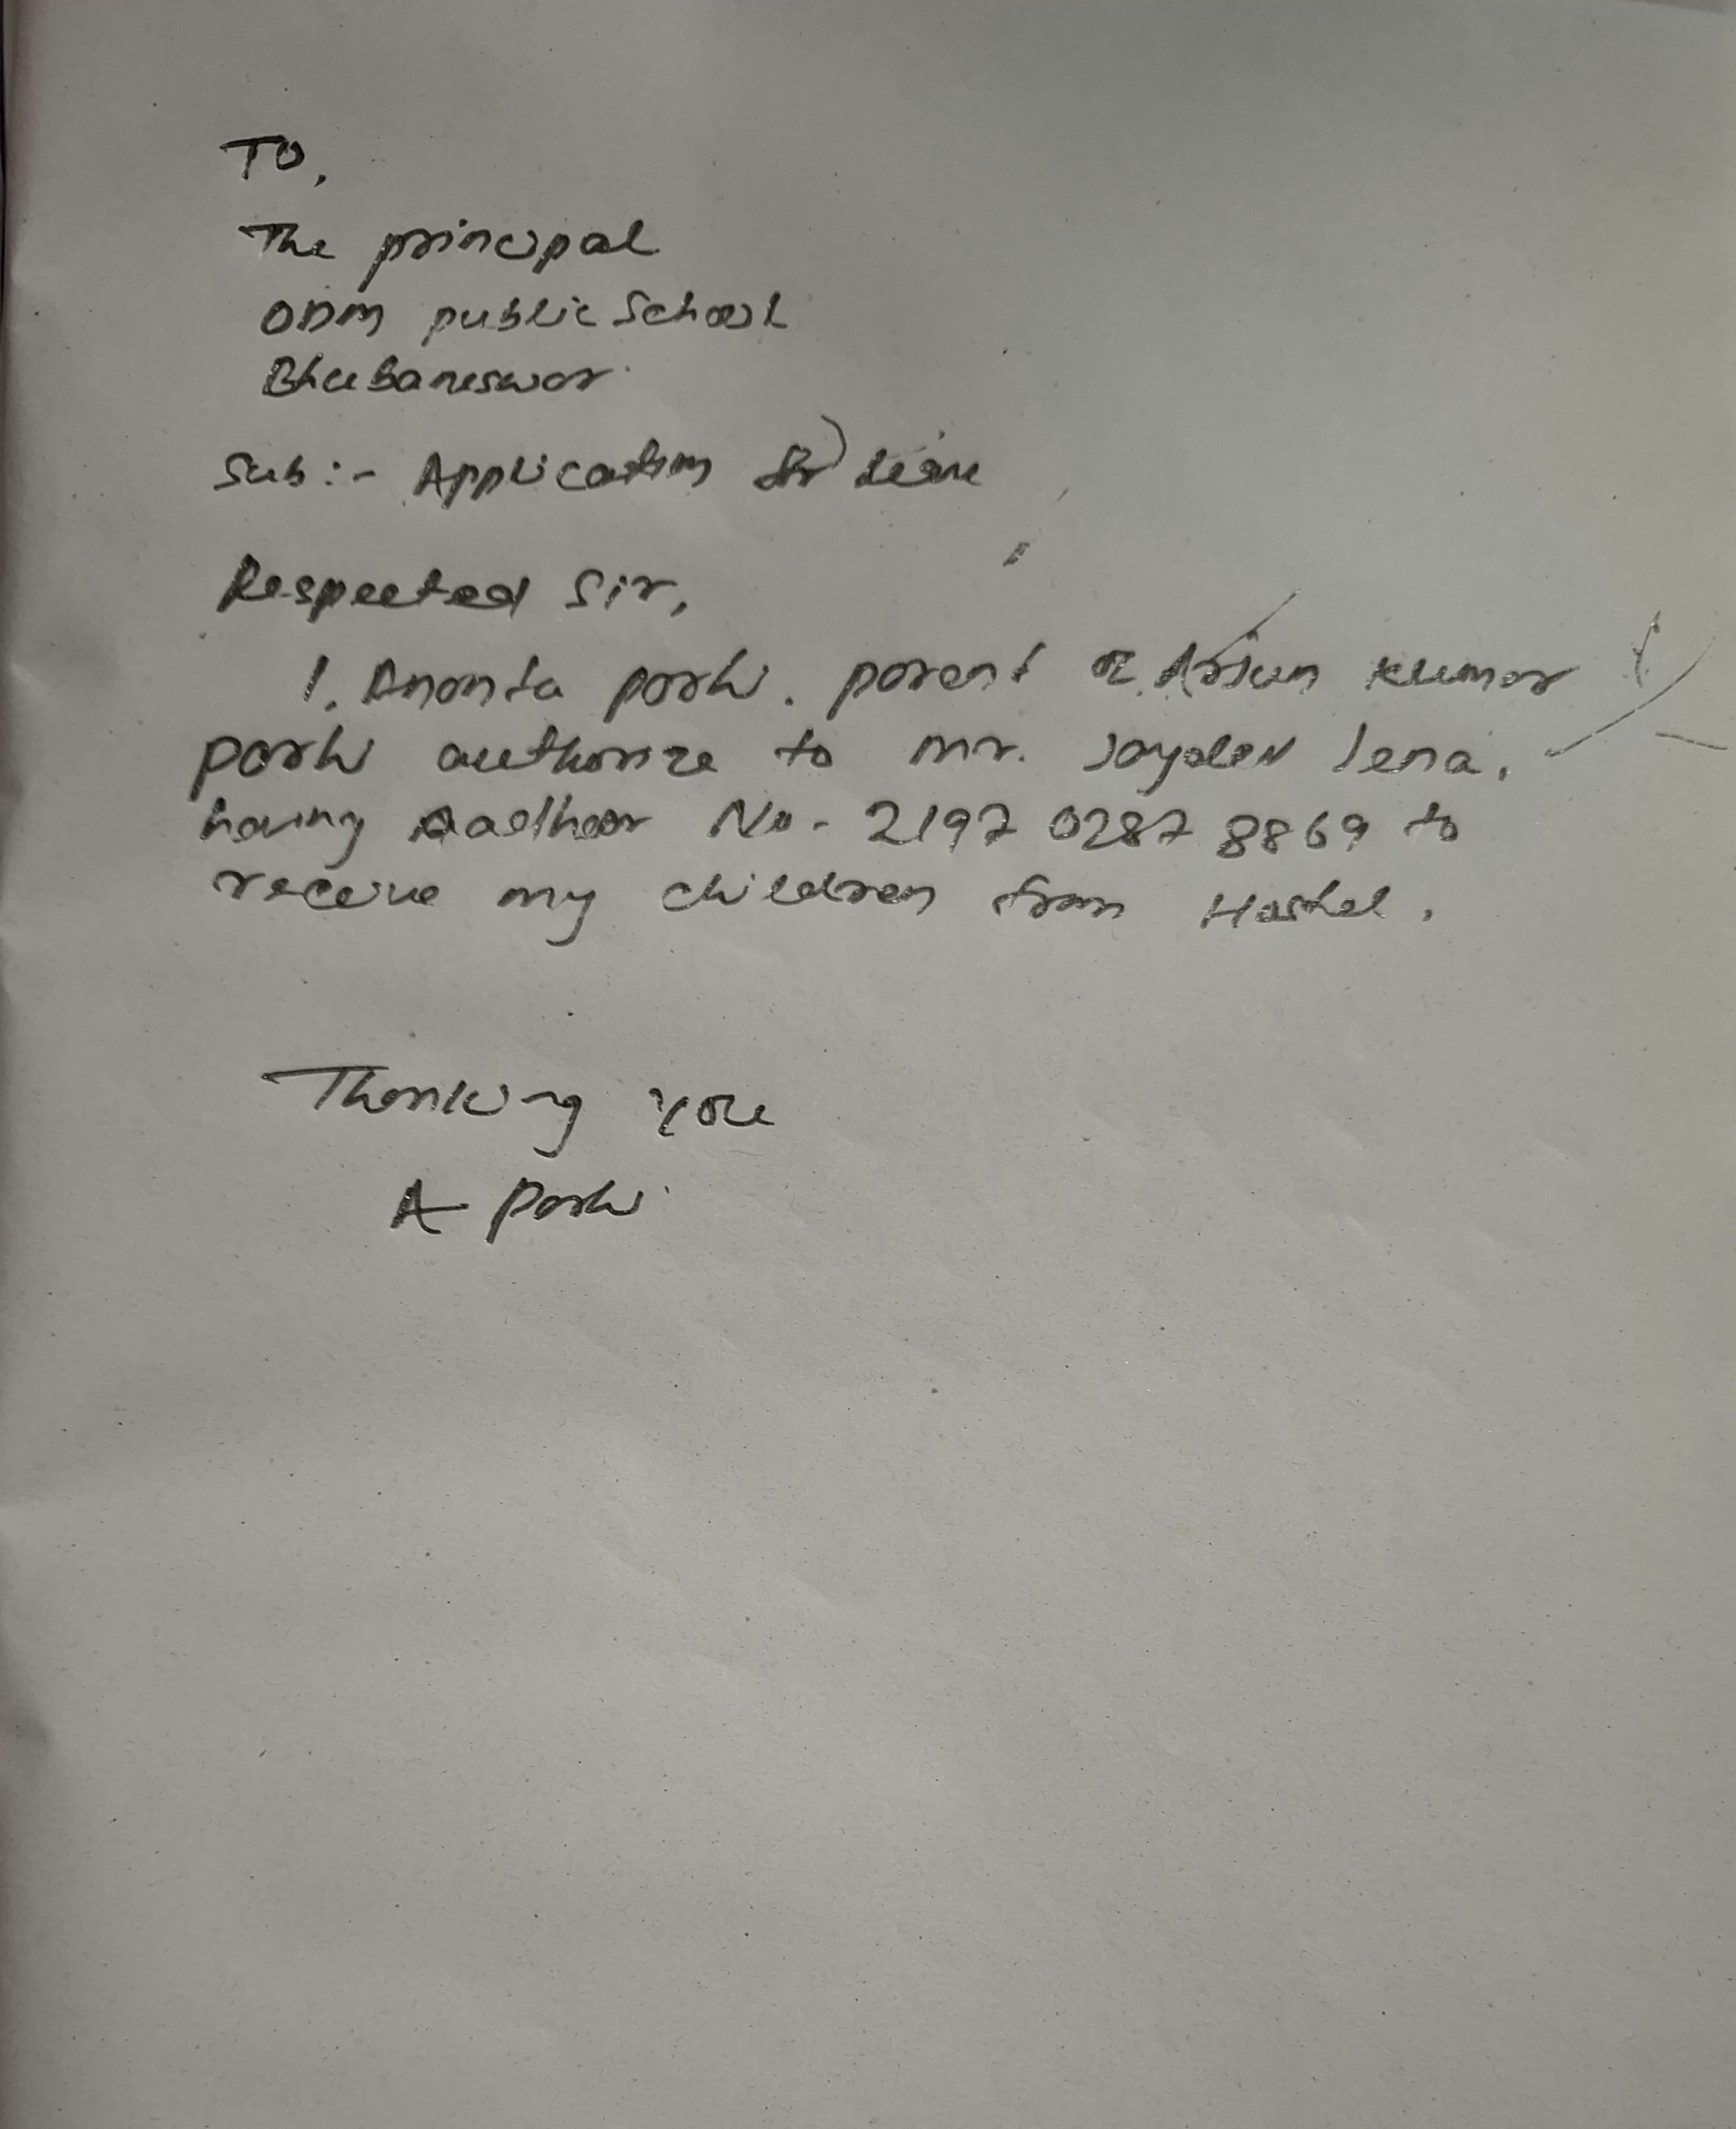 To,
The principal
ODM public School
Bhubaneswar
Sub :- Application for leave
Respected Sir,
I. Ananta parhi. parent of Arjun kumar
parhi authorize to mr. Jaydev Jena,
having Aadhaar No - 2197 0287 8869 to
receive my children from Hostel.
Thanking you
A Parhi